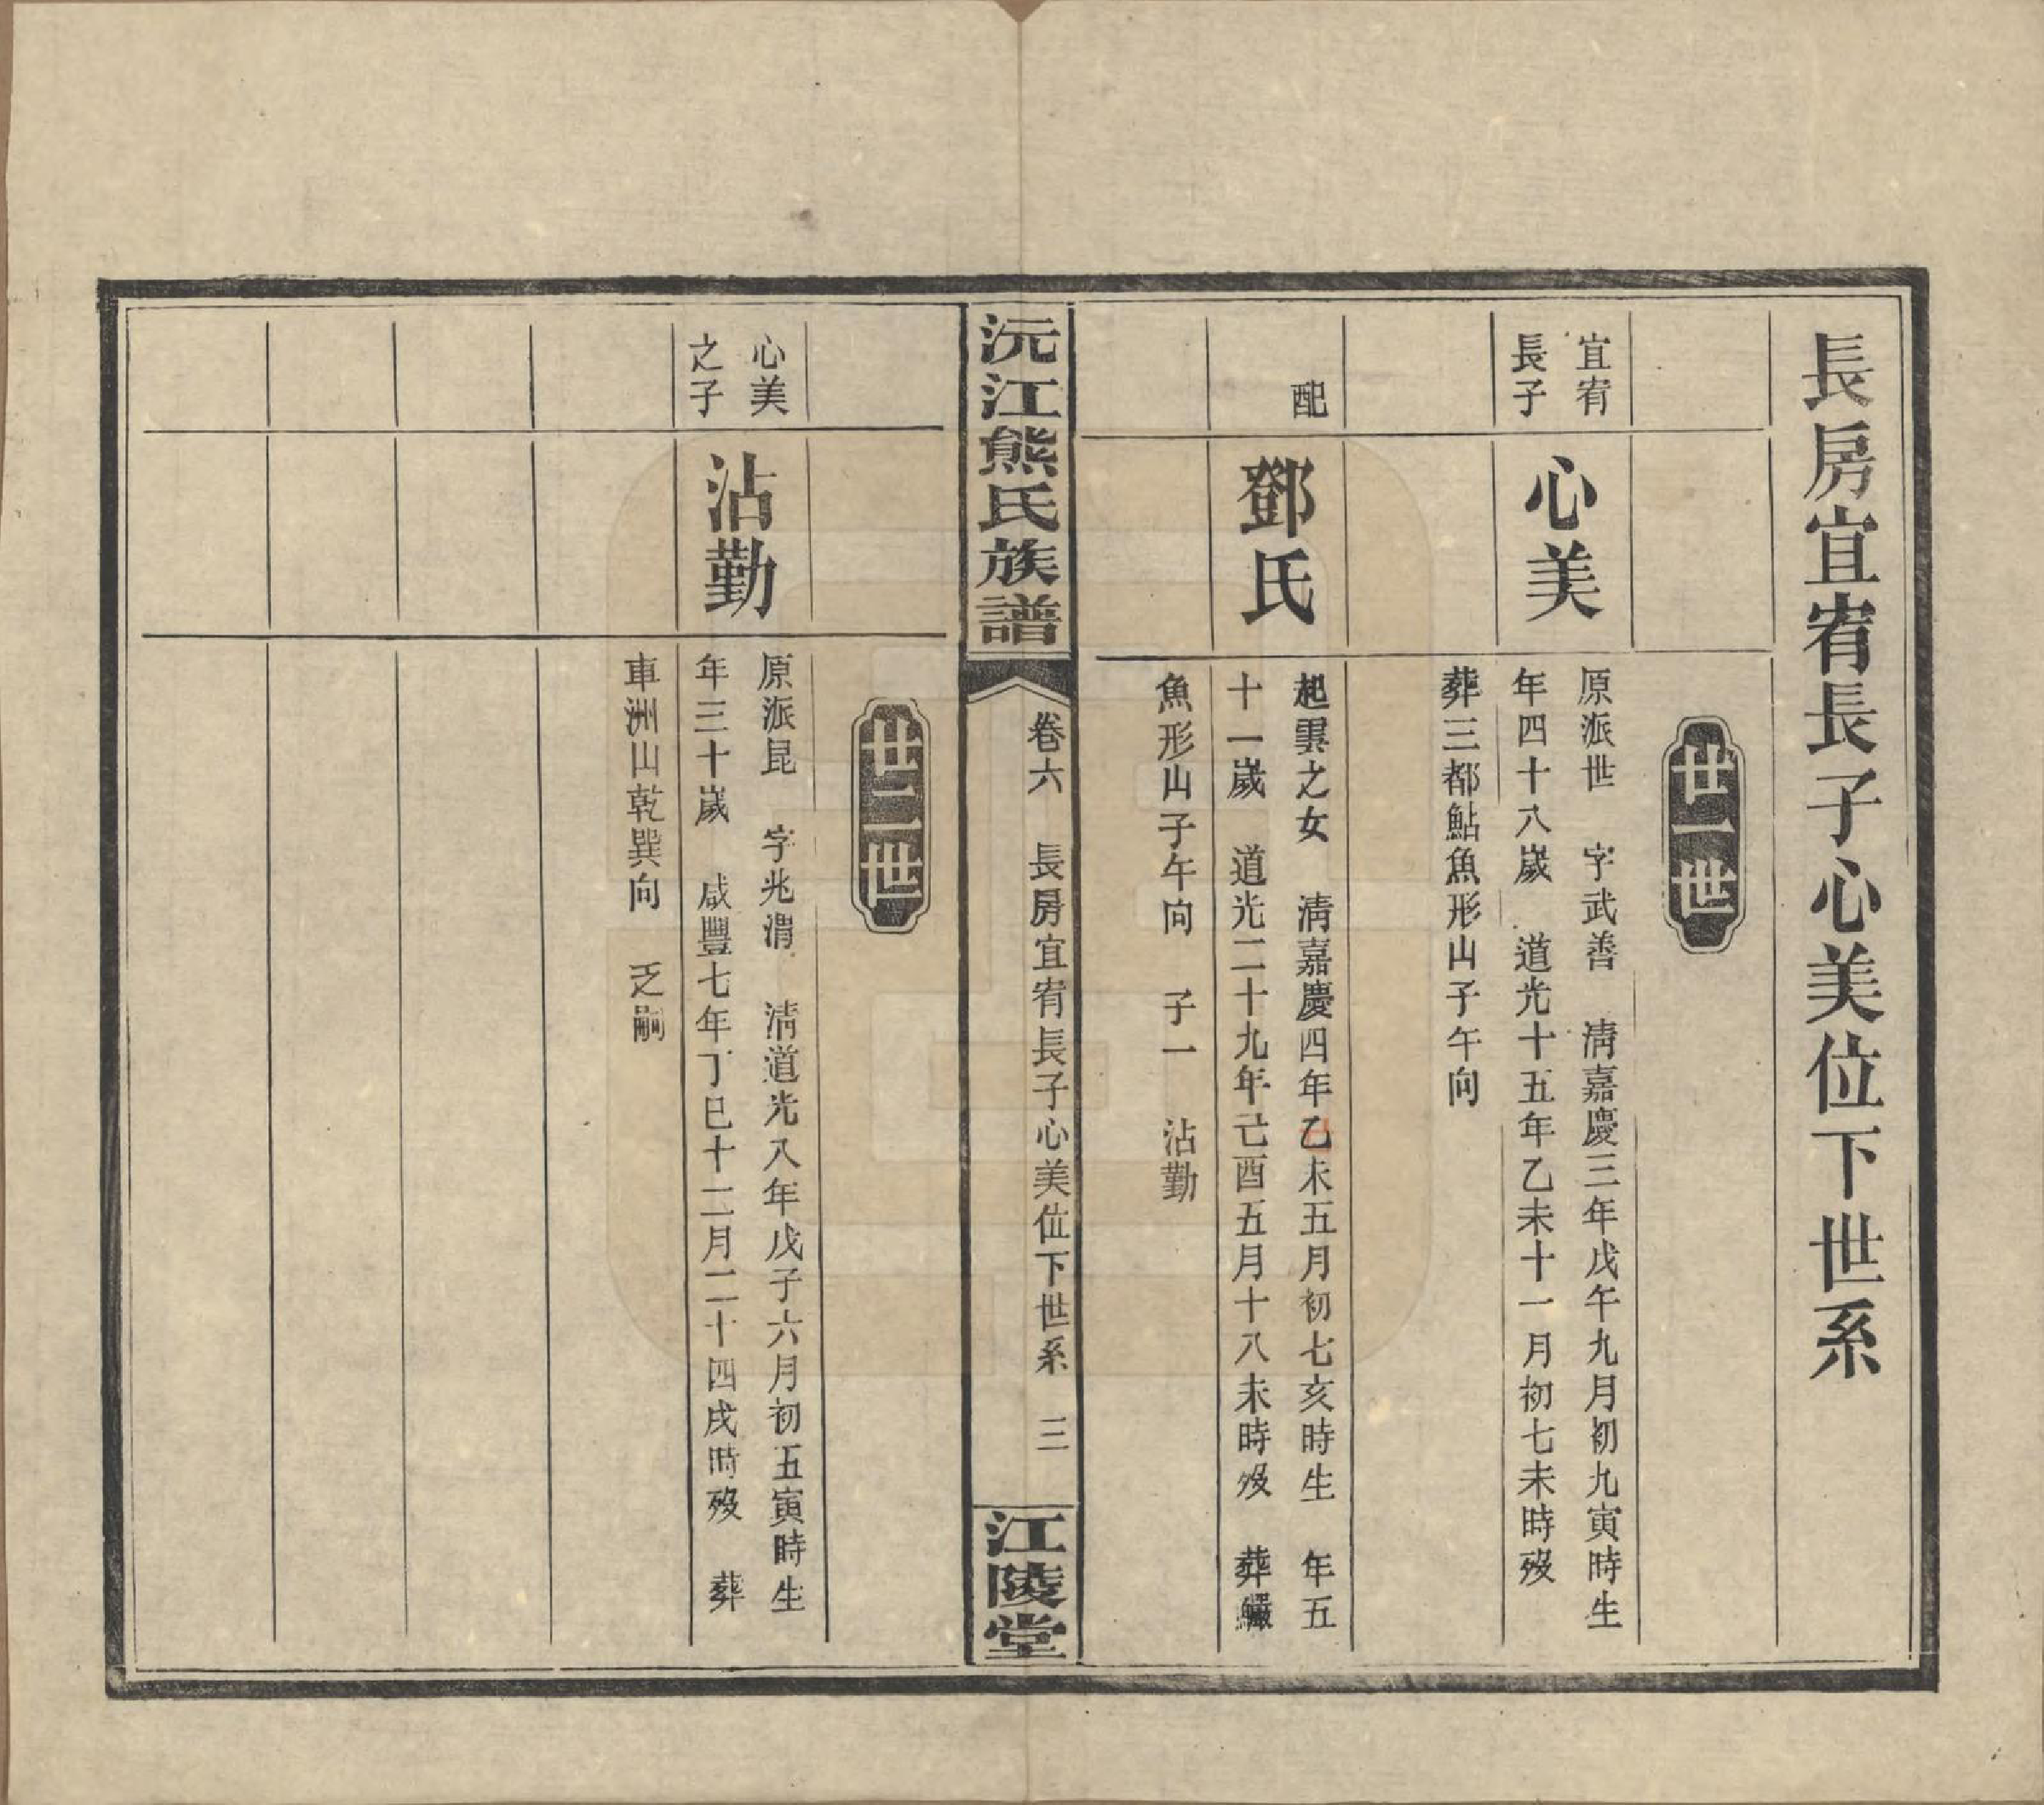 長房宜宥長子心美位下世系
廿一世
宜宥
長子
心美
原派世 字武善 清嘉慶三年戊午九月初九寅時生
年四十八歲 道光十五年乙未十一月初七未時歿
葬三都鮎魚形山子午向
配
鄧氏
起雲之女 清嘉慶四年乙未五月初七亥時生 年五
十一歲 道光二十九年己酉五月十八未時歿 葬
魚形山子午向 子一 沾勤
沅江熊氏族譜
卷六 長房宜宥長子心美位下世系 三
江陵堂
廿二世
心美
之子
沾勤
原派昆 字兆渭 清道光八年戊子六月初五寅時生
年三十歲 咸豐七年丁巳十二月二十四戌時歿 葬
車洲山乾巽向 乏嗣